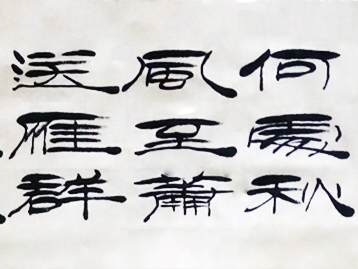 何處秋
風至蕭
送雁群